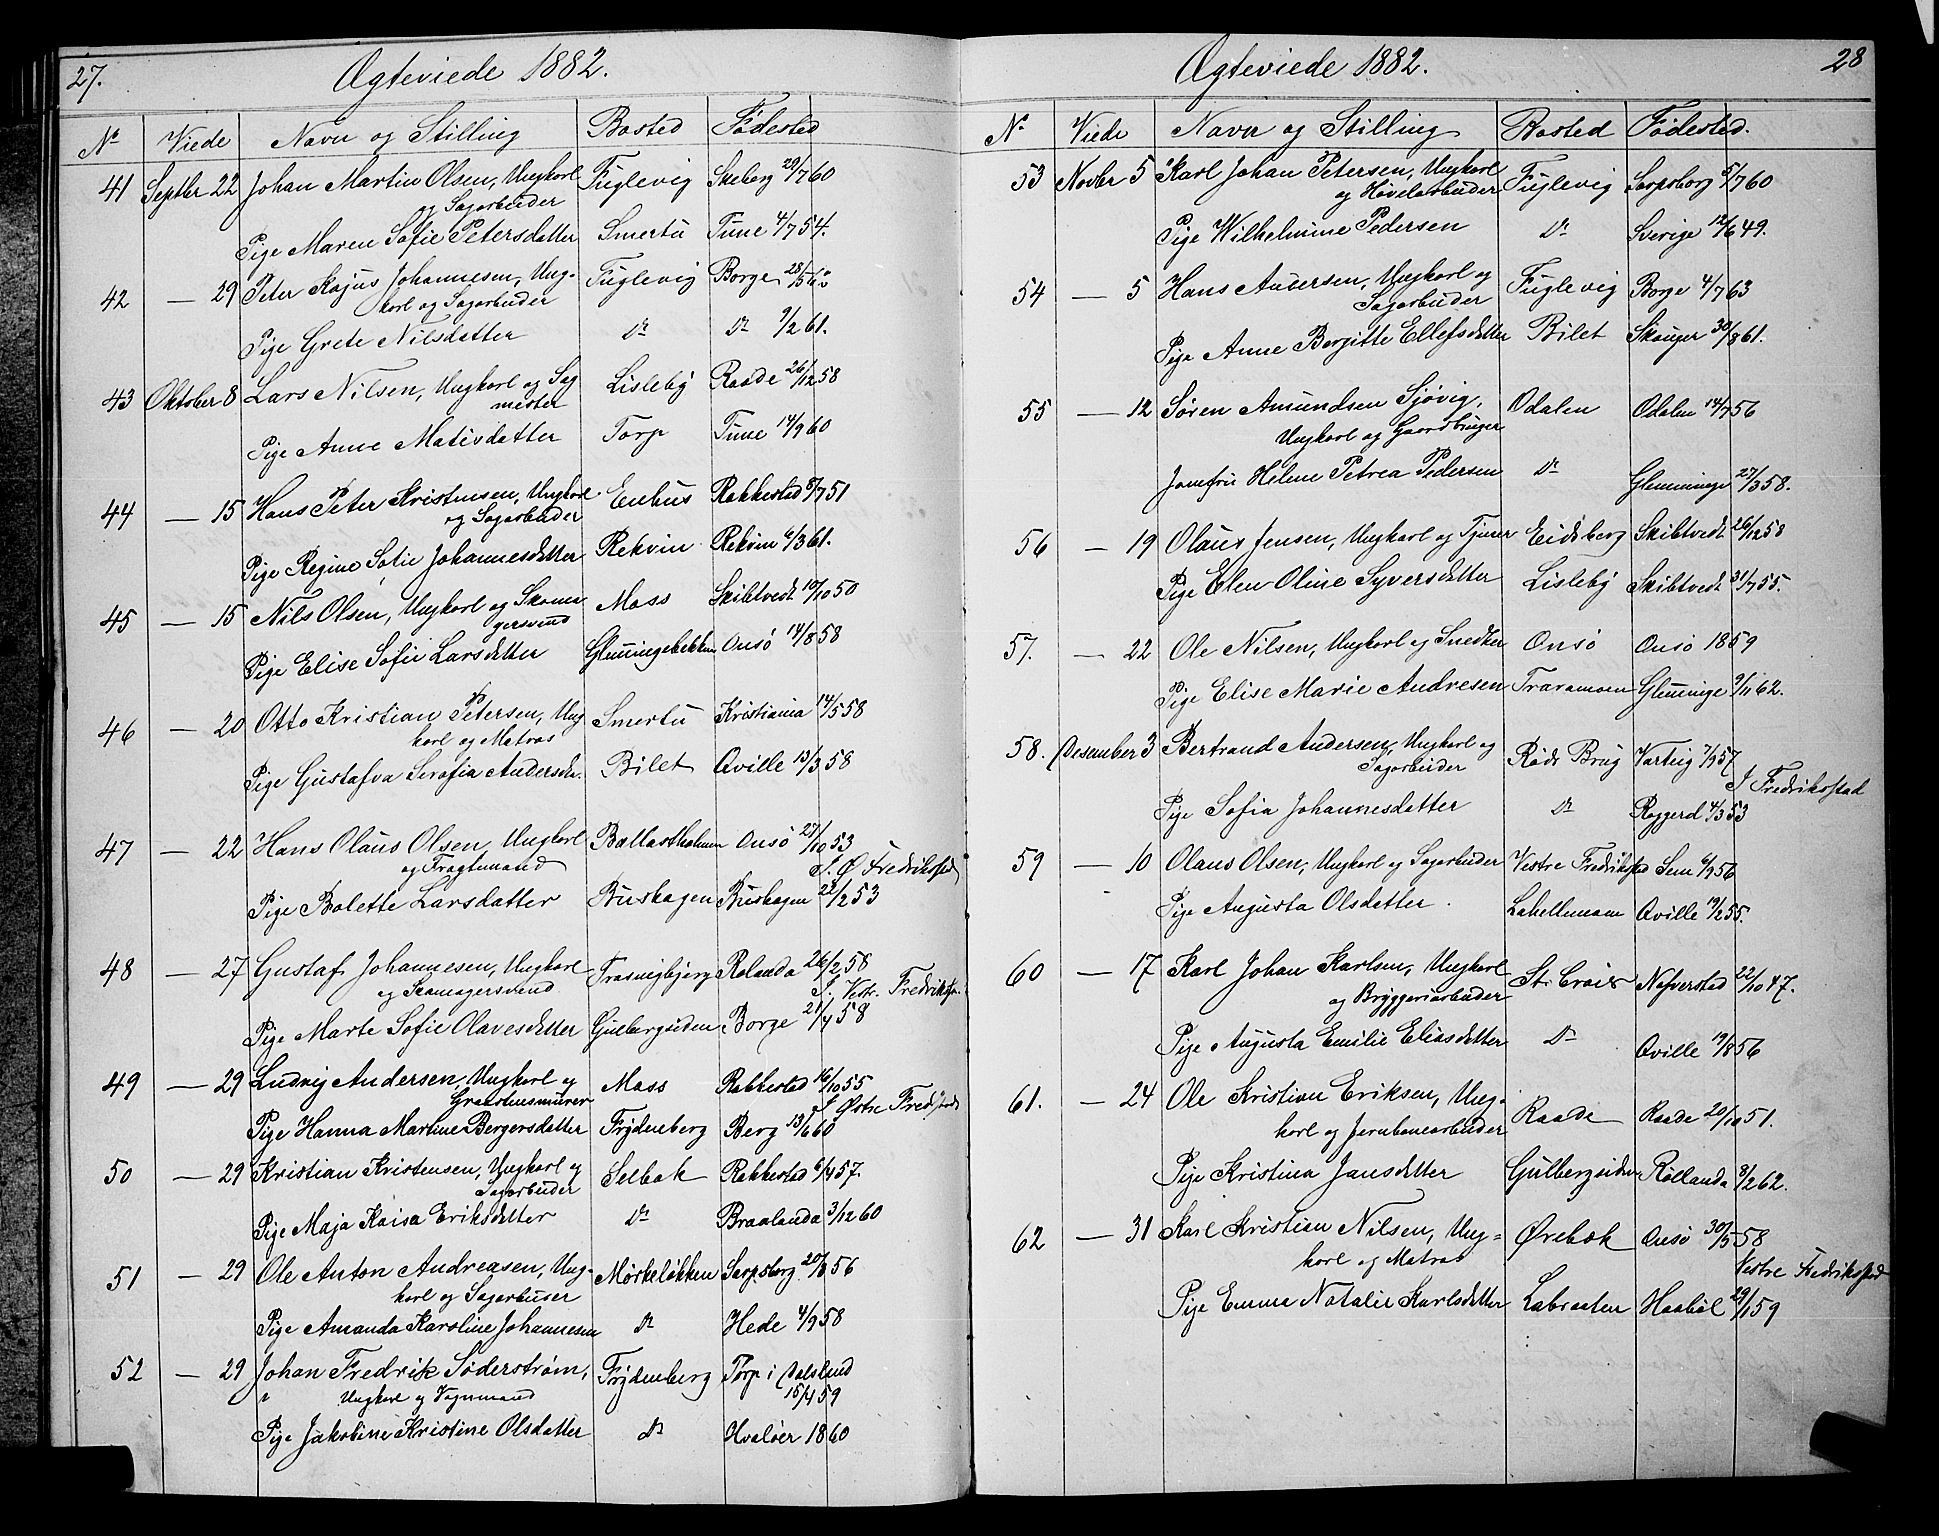 27.
Ægteviede 1882.
No Viede Navn og Stilling Bosted Fødested
41 Septbr 22 Johan Martin Olsen, Ungkarl Fuglevig Skeberg 29/7 60
og Sagarbeider
Pige Maren Sofie Petersdatter Smertu Tune 4/7 54.
42 — 29 Peter Kajus Johannesen, Ung- Fuglevig Borge 28/5 60
karl og Sagarbeider
Pige Grete Nilsdatter Do Do 9/2 61.
43 Oktober 8 Lars Nilsen, Ungkarl og Sag Lisleby Raade 26/12 58
mester
Pige Anne Mativdatter Torp Tune 14/9 60
44 — 15 Hans Peter Kristensen, Ungkarl Enhus Rakkestad 8/7 51
og Sagarbeider
Pige Regine Sofie Johannesdatter Rekvin Rekvin 6/3 61.
45 — 15 Nils Olsen, Ungkarl og Skoma Moss Skibtvedt 10/10 50
gersvend
Pige Elise Sofie Larsdatter Glemingebekken Onsö 14/8 58
46 — 20 Otto Kristian Petersen, Ung Smertu Kristiania 14/5 58
karl og Matros
Pige Gustafva Serafia Andersdr. Bilet Qville 13/3 58
47 — 22 Hans Olaus Olsen, Ungkarl Ballastholmen Onsö 27/10 53
og Fragtemand I. Ø Fredriksstad
Pige Bolette Larsdatter Buskogen Buskogen 22/2 53
48 — 27 Gustaf Johannesen, Ungkarl Trosvigbjerg Rolanda 26/2 58
og Skomagersvend I. Vestr. Fredriksst.
Pige Marte Sofie Olavesdatter Gulbergsiden Borge 21/4 58
49 — 29 Ludvig Andersen, Ungkarl og Moss Rakkestad 16/10 55
Graastensmurer I Østre Fredstad
Pige Hanna Martine Bergersdatter Frydenberg Berg 13/6 60
50 — 29 Kristian Kristensen, Ungkarl og Selbak Rakkestad 6/4 57.
Sagarbeider
Pige Maja Kaisa Eriksdatter Do Braalanda 3/12 60
51 — 29 Ole Anton Andreasen, Ung- Mørkeløkken Sarpsborg 20/8 56
karl og Sagarbuser
Pige Amanda Karoline Johannesen Do Hede 4/9 58
52 — 29 Johan Fredrik Söderström, Frydenberg Torp i Dalsland
Ungkarl og Vognmand 15/4 59
Pige Jakobine Kristine Olsdatter Do Hvaløer 1860
28
Ægteviede 1882.
No Viede Navn og Stilling Bosted Fødested.
53 Novbr 5 Karl Johan Petersen, Ungkarl Fuglevig Sarpsborg 5/7 60
og Høvelarbeider
Pige Wilhelmine Pedersen Do Sverige 12/6 49.
54 — 5 Hans Andersen, Ungkarl og Fuglevig Borge 4/7 63
Sagarbeider
Pige Anne Bergitte Ellefsdatter Bilet Skouger 30/8 61.
55 — 12 Søren Amundsen Sjøvig, Odalen Odalen 14/7 56
Ungkarl og Gaardbruger
Jomfru Helene Petrea Pedersen Do Glemminge 27/3 58.
56 — 19 Olaus Jensen, Ungkarl og Tjener Eidsberg Skibtvedt 26/12 58
Pige Elen Oline Syversdatter Lisleby Skibtvedt 31/7 55.
57. — 22 Ole Nilsen, Ungkarl og Snedker Onsö Onsö 1859
Pige Elise Marie Andresen Traramoen Gleminge 9/11 62.
58. Desember 3 Bertrand Andersen, Ungkarl og Røds Brug Varteig 7/9 57
Sagarbeider I Fredriksstad
Pige Sofia Johannesdatter Do Roggerd 4/3 53
59 — 10 Olaus Olsen, Ungkarl og Sagarbeider Vestre Fredriksstad Sem 6/9 56
Pige Augusta Olsdatter Lahellemoen Qville 19/2 55.
60 — 17 Karl Johan Karlsen, Ungkarl St. Croix Nafverstad 22/10 47.
og Bryggeriarbeider
Pige Augusta Emilie Eliasdatter Do Qville 19/8 56
61. — 24 Ole Kristian Eriksen, Ung- Raade Raade 20/10 51.
karl og Jernbanearbeider
Pige Kristina Jansdatter Gulbergsiden Röllanda 8/2 62.
62 — 31 Karl Kristian Nilsen, Ung- Ørebæk Onsö 30/5 58
karl og Matros Vestre Fredriksstad
Pige Emma Natalie Karlsdatter Labraaten Haabøl 29/1 59